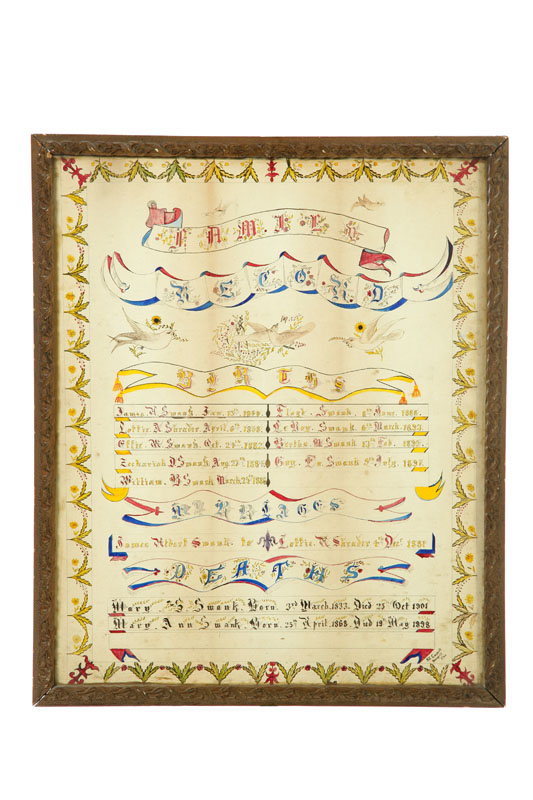 FAMILY
RECORD
BIRTHS
James A Swank Jan. 13th
Lottie A Shrader April. 6th
Effie. M. Swank. Oct. 24th 1882
Zachariah D Swank Aug 25th
William. B Swank March 24th
Floyd. Swank. 8th June. 1888.
Le Roy. Swank. 6th March. 1893.
Bertha M Swank 13th Feb. 1895.
Guy. Swank 9th July. 1898
MARRIAGES
James Albert Swank. to Lottie. A Shrader Dec. 1881
DEATHS
Mary Swank Born. 3rd March. 1833. Died 25 Oct 1901
Mary Ann Swank Born. 25th April. 1868. Died 19 May 1898